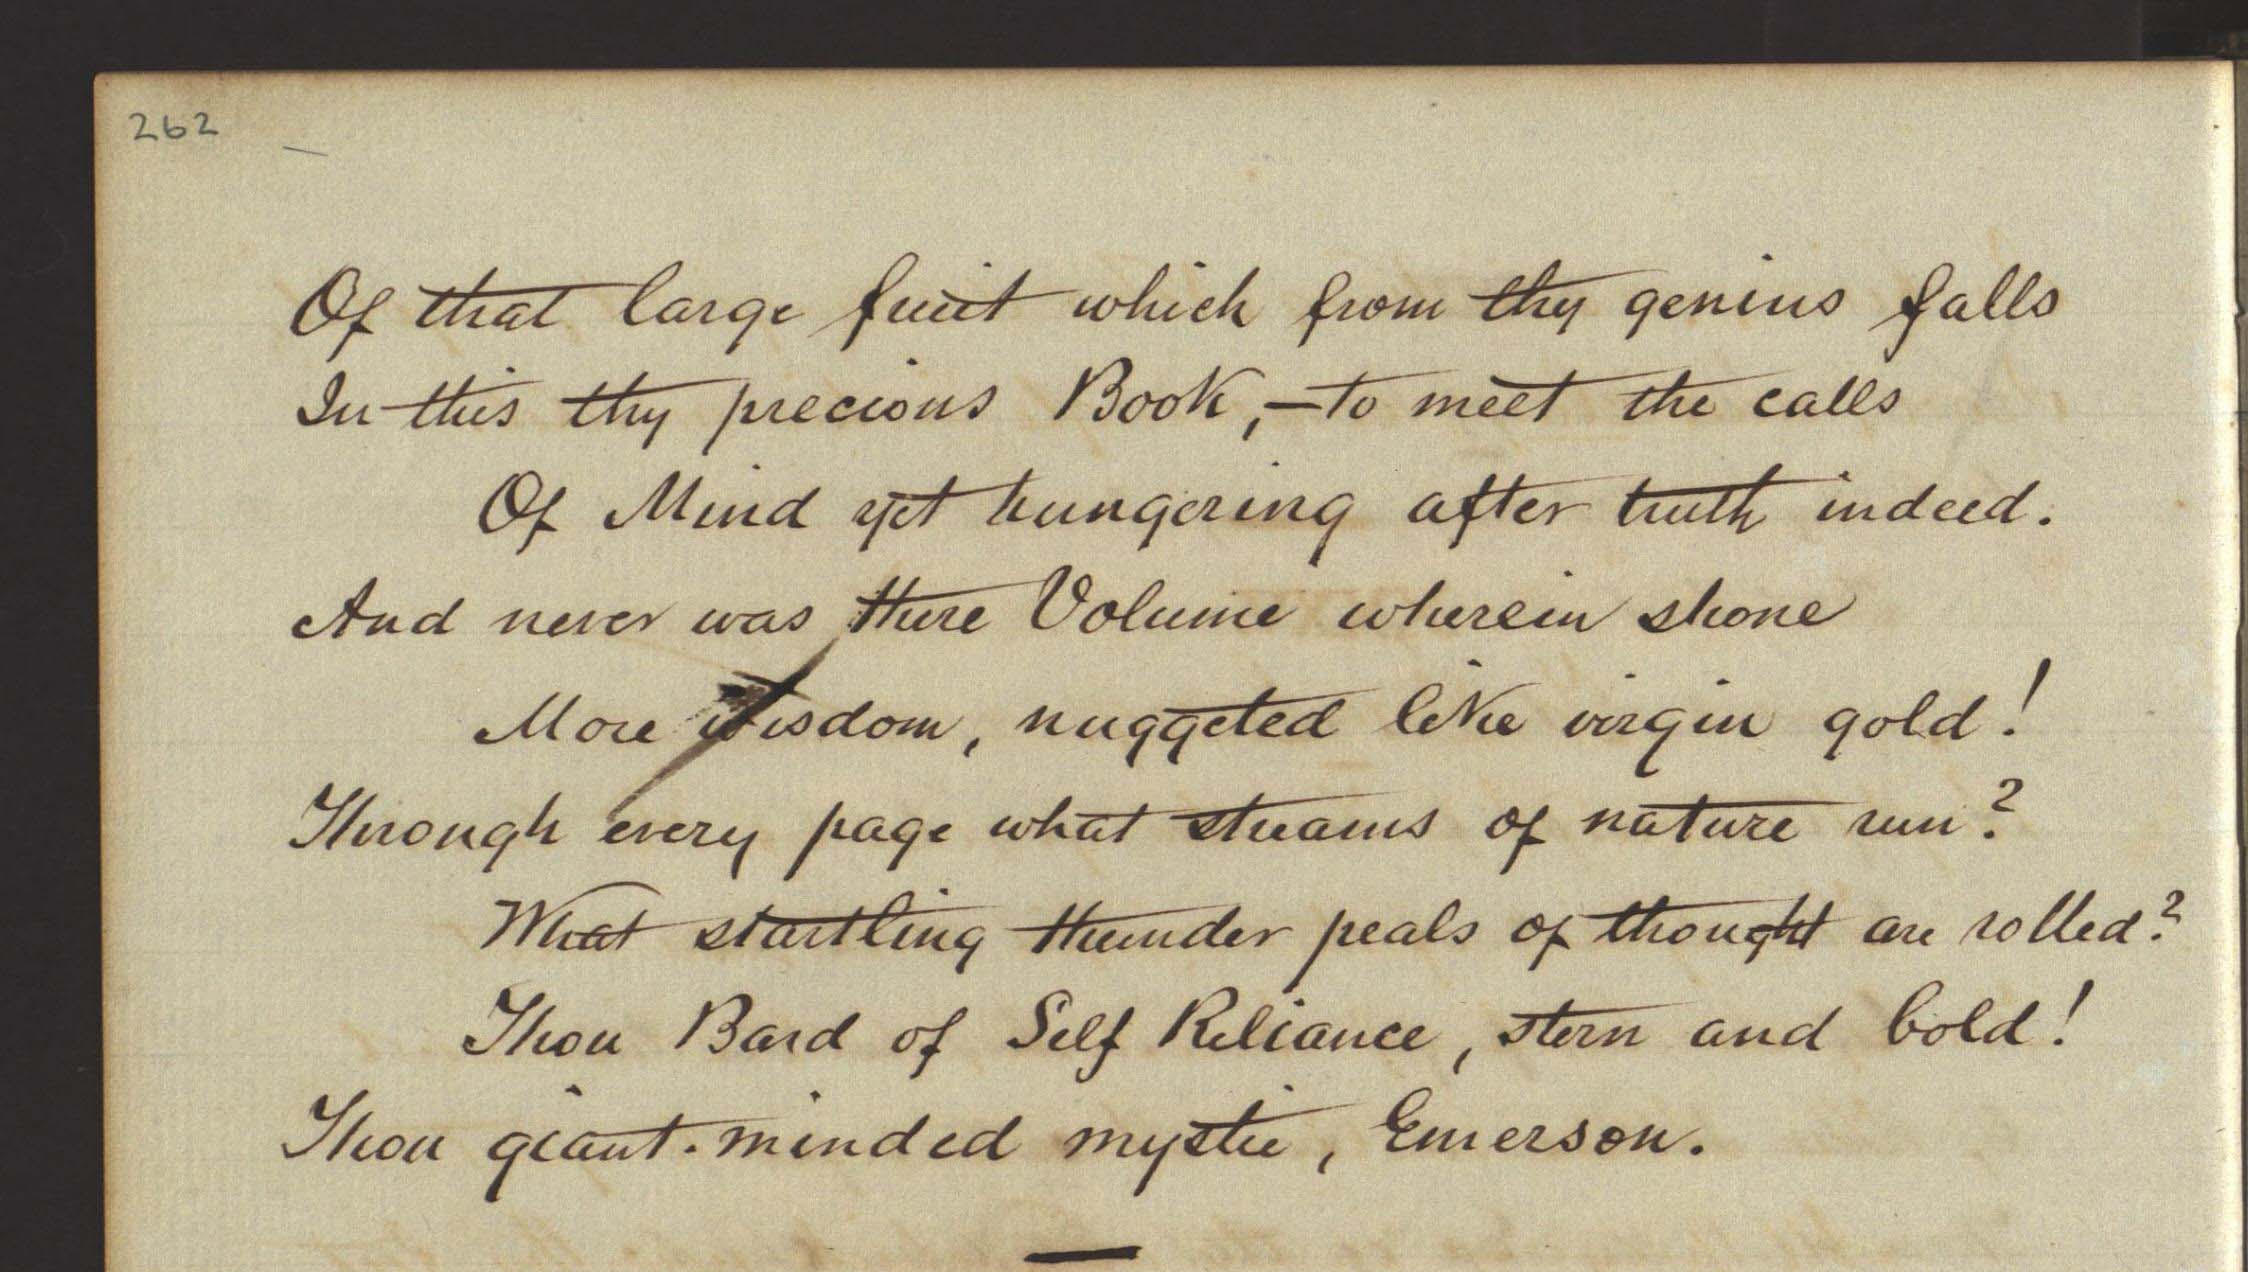 262
Of that large fruit which from thy genius falls
In this thy precious Book,—to meet the calls
Of Mind yet hungering after truth indeed.
And never was there Volume wherein shone
More wisdom, nuggeted like virgin gold!
Through every page what streams of nature run?
What startling thunder peals of thought are rolled?
Thou Bard of Self Reliance, stern and bold!
Thou giant-minded mystic, Emerson.